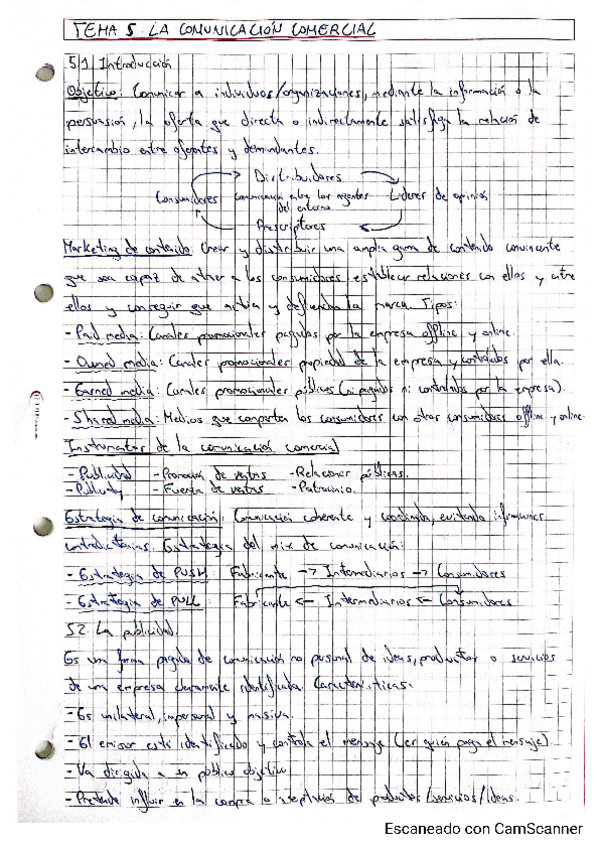 TEMA 5. LA COMUNICACIÓN COMERCIAL
5.1 Introducción
Objetivo: Comunicar a individuos/organizaciones, mediante la información o la
persuasión, la oferta que directa o indirectamente satisfaga la relación de
intercambio entre oferentes y demandantes.
Distribuidores
Consumidores Comunicación entre los agentes del entorno Líderes de opinión
Prescriptores
Marketing de contenido: Crear y distribuir una amplia gama de contenido convincente
que sea capaz de atraer a los consumidores, establecer relaciones con ellos y entre
ellos y conseguir que actúa y defienda la marca. Tipos:
- Paid media: Canales promocionales pagados por la empresa offline y online.
- Owned media: Canales promocionales propiedad de la empresa y controlados por ella.
- Earned media: Canales promocionales públicos (ni pagados ni controlados por la empresa).
- Shared media: Medios que comparten los consumidores con otros consumidores offline y online.
Instrumentos de la comunicación comercial
- Publicidad - Promoción de ventas - Relaciones públicas.
- Publicity - Fuerza de ventas - Patrocinio.
Estrategia de comunicación: Comunicación coherente y coordinada, evitando informaciones
contradictorias. Estrategia del mix de comunicación:
- Estrategia de PUSH: Fabricante -> Intermediarios -> Consumidores
- Estrategia de PULL: Fabricante <- Intermediarios <- Consumidores
5.2. La publicidad.
Es una forma pagada de comunicación no personal de ideas, productos o servicios
de una empresa claramente identificada. Características:
- Es unilateral, impersonal y masiva.
- El emisor está identificado y controla el mensaje (es quien paga el mensaje)
- Va dirigida a un público objetivo
- Pretende influir en la compra o aceptación de productos/servicios/ideas.
Escaneado con CamScanner